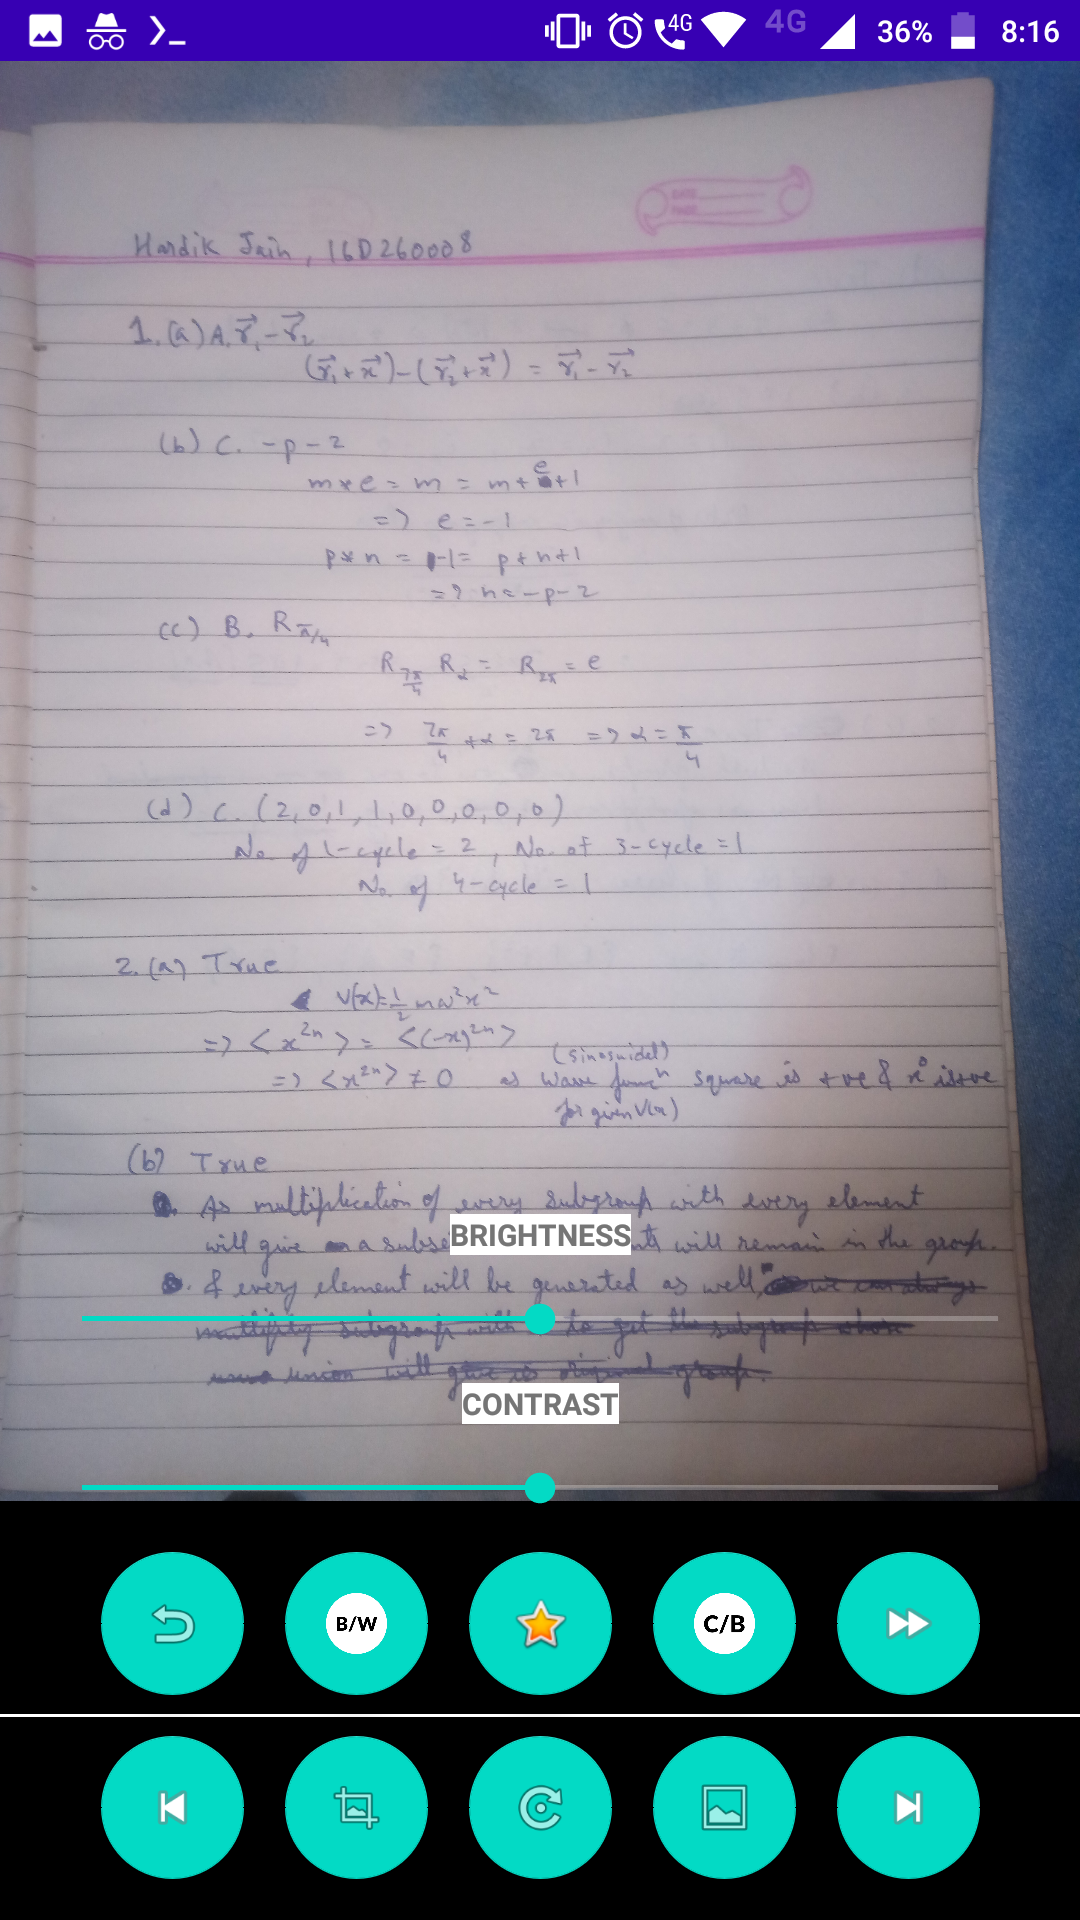 4G 4G 36% 8:16
DATE
PAGE
Hardik Jain, 16D260008
1. (a) A. r⃗₁ - r⃗₂
(r⃗₁ + x⃗) - (r⃗₂ + x⃗) = r⃗₁ - r⃗₂
(b) C. -p-2
m*e = m = m+e+1
=> e = -1
p*n = -1 = p+n+1
=> n = -p-2
(c) B. R_π/4
R_7π/4 R_α = R_2π = e
=> 7π/4 + α = 2π => α = π/4
(d) C. (2,0,1,1,0,0,0,0,0)
No. of 1-cycle = 2, No. of 3-cycle = 1
No. of 4-cycle = 1
2. (a) True
V(x) = 1/2 mω²x²
=> <x²ⁿ> = <(-x)²ⁿ>
(sinosuidal)
=> <x²ⁿ> ≠ 0 as wave funcⁿ square is +ve & is +ve
for given V(x)
(b) True
As multiplication of every subgroup with every element
BRIGHTNESS
will give a will remain in the group.
& every element will be generated as well
CONTRAST
B/W C/B